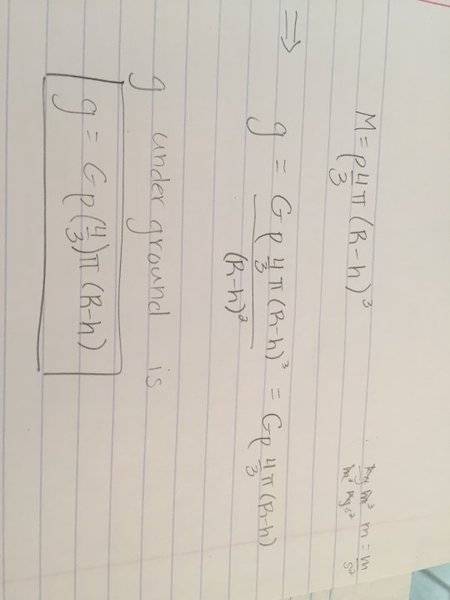 M = ρ 4/3 π (R-h)³
⇒ g = Gρ 4/3 π (R-h)³ / (R-h)² = Gρ 4/3 π (R-h)
g under ground is
g = Gρ(4/3)π(R-h)